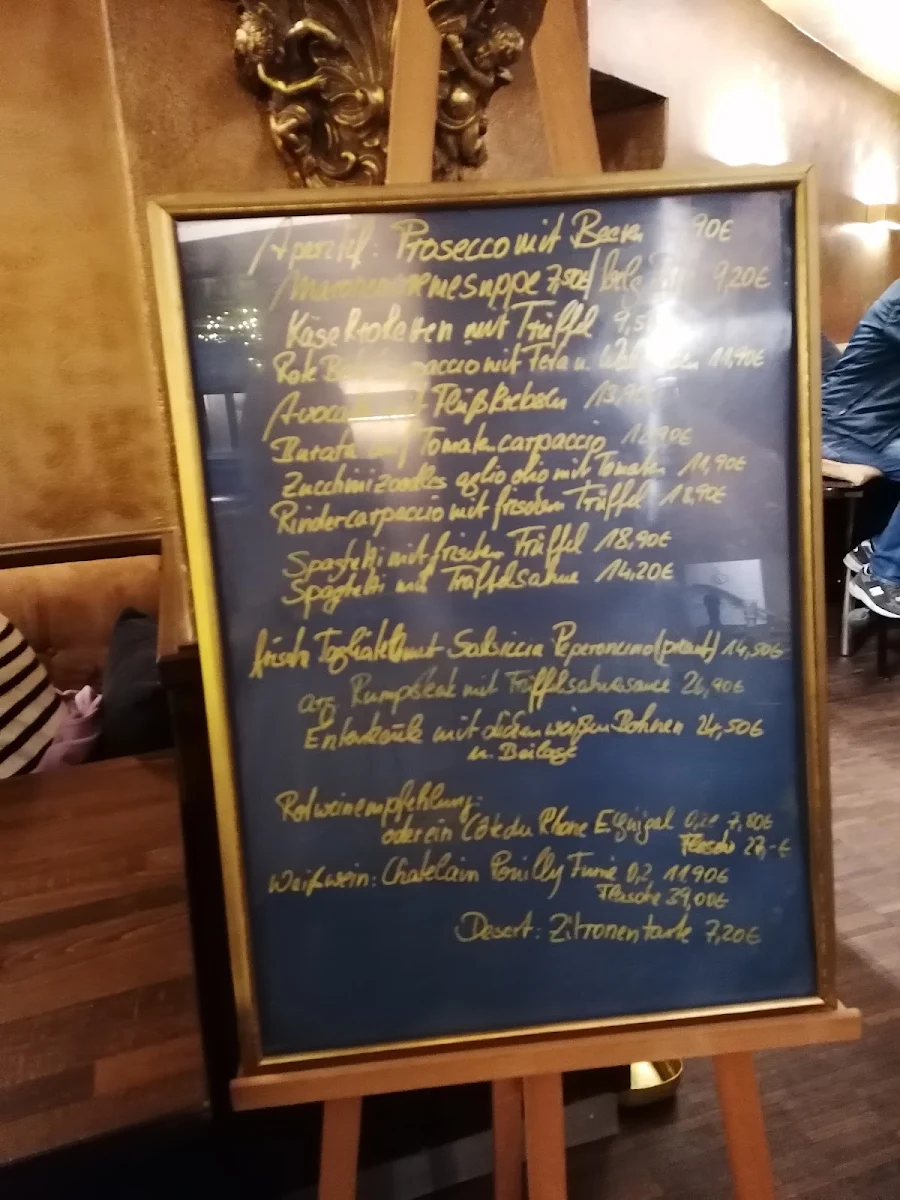 Aperitif: Prosecco mit Beeren 90€
Maronencremesuppe 7,50€/ 9,20€
Käsekroketten mit Trüffel 9,5
Rote carpaccio mit Feta u. 11,90€
mit Flußkrebsen 13,90€
Burata auf Tomatencarpaccio 12,90€
Zucchinizoodles aglio olio mit Tomaten 11,90€
Rindercarpaccio mit frischem Trüffel 18,90€
Spaghetti mit frischem Trüffel 18,90€
Spaghetti mit Trüffelsahne 14,20€
frische Tagliatelle mit Salsiccia Peperoncino (pikant) 14,50€
arg. Rumpsteak mit Trüffelsahnesauce 26,90€
Entenkeule mit dicken weißen Bohnen 24,50€
u. Beilage
Rotweinempfehlung:
oder ein Côte du Rhone E.Guigal 7,80€
Flasche 27,-€
Weißwein: Chatelain Pouilly Fumé 0,2 11,90€
Flasche 39,00€
Desert: Zitronentarte 7,20€